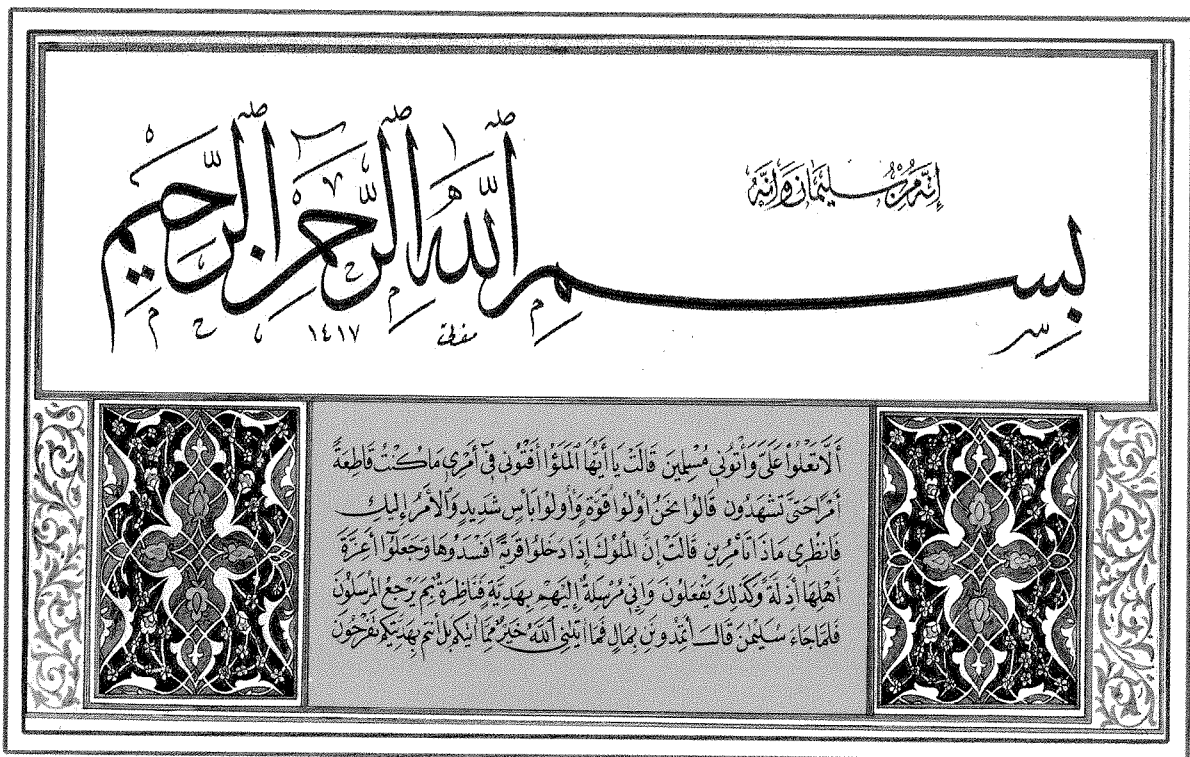 إِنَّهُ مِنْ سُلَيْمَانَ وَإِنَّهُ
بِسْمِ ٱللَّهِ ٱلرَّحْمٰنِ ٱلرَّحِيمِ
١٤١٧
أَلَّا تَعْلُوا عَلَيَّ وَأْتُونِي مُسْلِمِينَ قَالَتْ يَا أَيُّهَا الْمَلَؤُا أَفْتُونِي فِي أَمْرِي مَا كُنْتُ قَاطِعَةً
أَمْرًا حَتَّى تَشْهَدُونِ قَالُوا نَحْنُ أُولُوا قُوَّةٍ وَأُولُوا بَأْسٍ شَدِيدٍ وَالْأَمْرُ إِلَيْكِ
فَانْظُرِي مَاذَا تَأْمُرِينَ قَالَتْ إِنَّ الْمُلُوكَ إِذَا دَخَلُوا قَرْيَةً أَفْسَدُوهَا وَجَعَلُوا أَعِزَّةَ
أَهْلِهَا أَذِلَّةً وَكَذَلِكَ يَفْعَلُونَ وَإِنِّي مُرْسِلَةٌ إِلَيْهِمْ بِهَدِيَّةٍ فَنَاظِرَةٌ بِمَ يَرْجِعُ الْمُرْسَلُونَ
فَلَمَّا جَاءَ سُلَيْمٰنَ قَالَ أَتُمِدُّونَنِ بِمَالٍ فَمَا آتٰنِيَ اللَّهُ خَيْرٌ مِمَّا آتٰكُمْ بَلْ أَنْتُمْ بِهَدِيَّتِكُمْ تَفْرَحُونَ